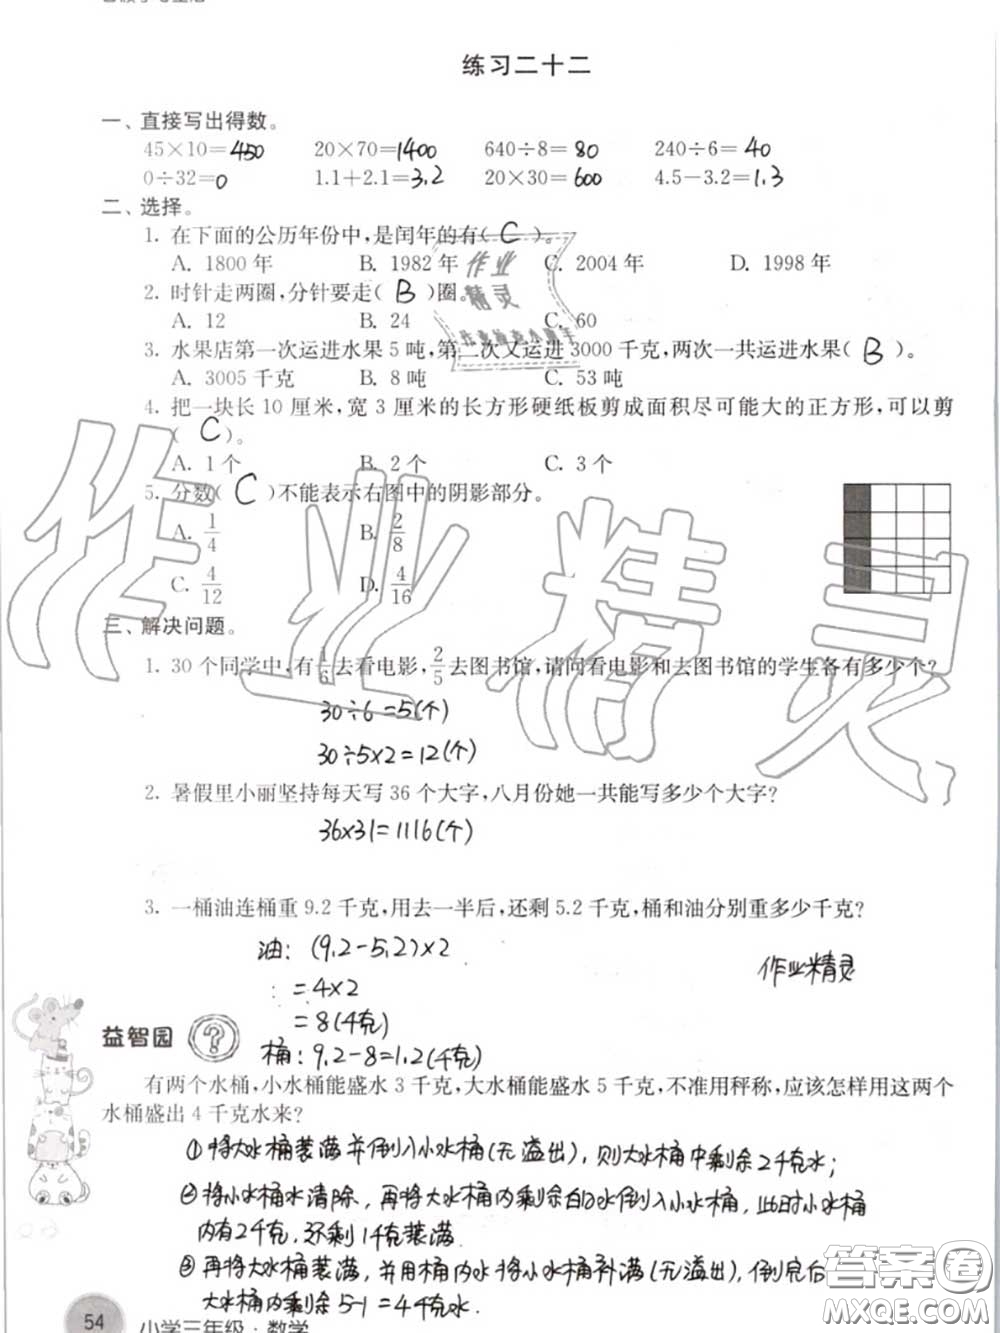 练习二十二
一、直接写出得数。
45×10=450 20×70=1400 640÷8=80 240÷6=40
0÷32=0 1.1+2.1=3.2 20×30=600 4.5-3.2=1.3
二、选择。
1. 在下面的公历年份中,是闰年的有( C )。
A. 1800 年 B. 1982 年 C. 2004 年 D. 1998 年
2. 时针走两圈,分针要走( B )圈。
A. 12 B. 24 C. 60
3. 水果店第一次运进水果 5 吨,第二次又运进 3000 千克,两次一共运进水果( B )。
A. 3005 千克 B. 8 吨 C. 53 吨
4. 把一块长 10 厘米,宽 3 厘米的长方形硬纸板剪成面积尽可能大的正方形,可以剪
( C )。
A. 1 个 B. 2 个 C. 3 个
5. 分数( C )不能表示右图中的阴影部分。
A. 1/4 B. 2/8
C. 4/12 D. 4/16
三、解决问题。
1. 30 个同学中,有 1/6 去看电影, 2/5 去图书馆,请问看电影和去图书馆的学生各有多少个?
30÷6=5(个)
30÷5×2=12(个)
2. 暑假里小丽坚持每天写 36 个大字,八月份她一共能写多少个大字?
36×31=1116(个)
3. 一桶油连桶重 9.2 千克,用去一半后,还剩 5.2 千克,桶和油分别重多少千克?
油: (9.2-5.2)×2
=4×2
=8(千克)
桶: 9.2-8=1.2(千克)
作业精灵
益智园 ?
有两个水桶,小水桶能盛水 3 千克,大水桶能盛水 5 千克,不准用秤称,应该怎样用这两个
水桶盛出 4 千克水来?
①将大水桶装满并倒入小水桶(无溢出),则大水桶中剩余2千克水;
②将小水桶水清除,再将大水桶内剩余的水倒入小水桶,此时小水桶
内有2千克,还剩1千克装满.
③再将大水桶装满,并用桶内水将小水桶补满(无溢出),倒完后
大水桶内剩余5-1=4千克水.
54 小学三年级·数学
作业精灵
作业精灵
答案圈
MXQE.COM